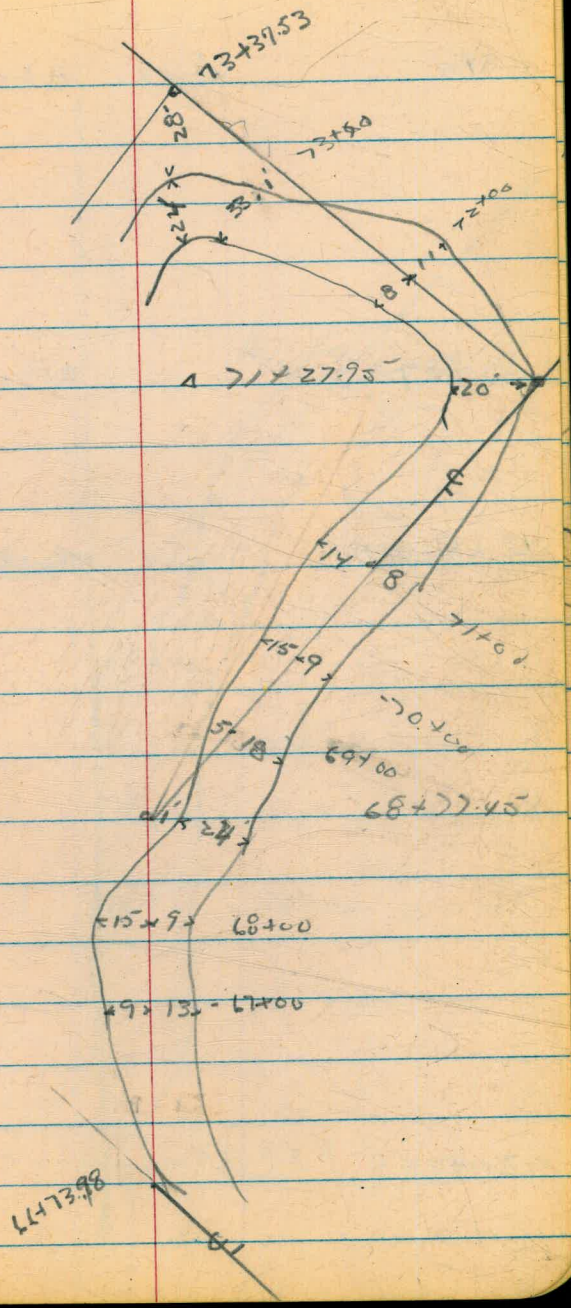 73+37.53
28'
73+00
24
33'
11' 72+00
8
△ 71+27.95
20'
14 8
71+00
15 9
70+00
5 18 69+00
68+77.45
1' 24'
15 9 68+00
9 13 - 67+00